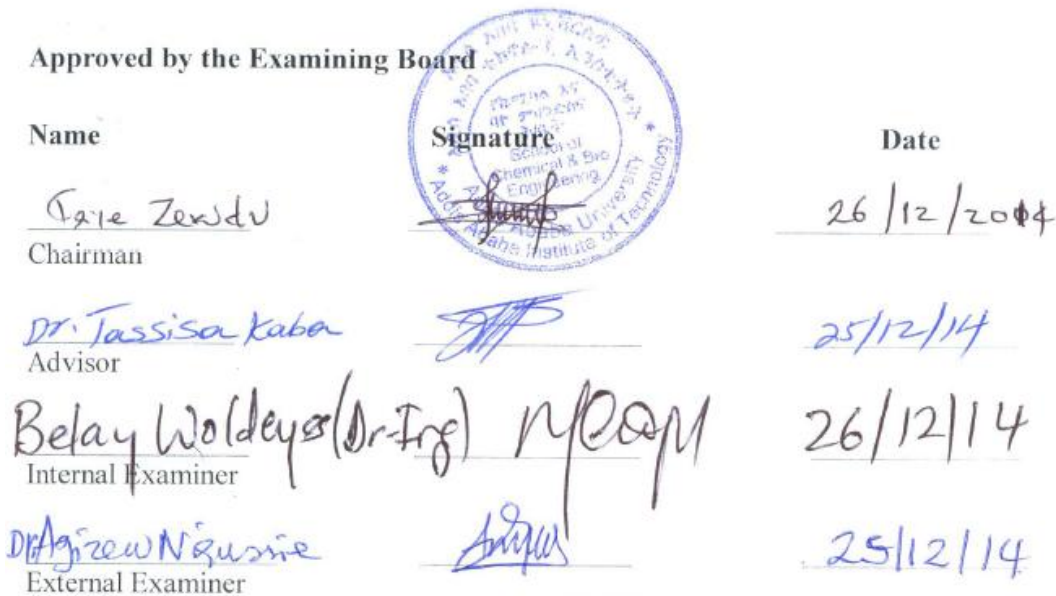 Approved by the Examining Board
Name Signature Date
Zewdu 26/12/2014
Chairman
Dr. Tassisa Kaba 25/12/14
Advisor
Belay Woldeyes (Dr-Ing) 26/12/14
Internal Examiner
Dr Agizew Nigussie 25/12/14
External Examiner
School of
Chemical & Bio
Engineering
Addis Ababa University
* Addis Ababa Institute of Technology *